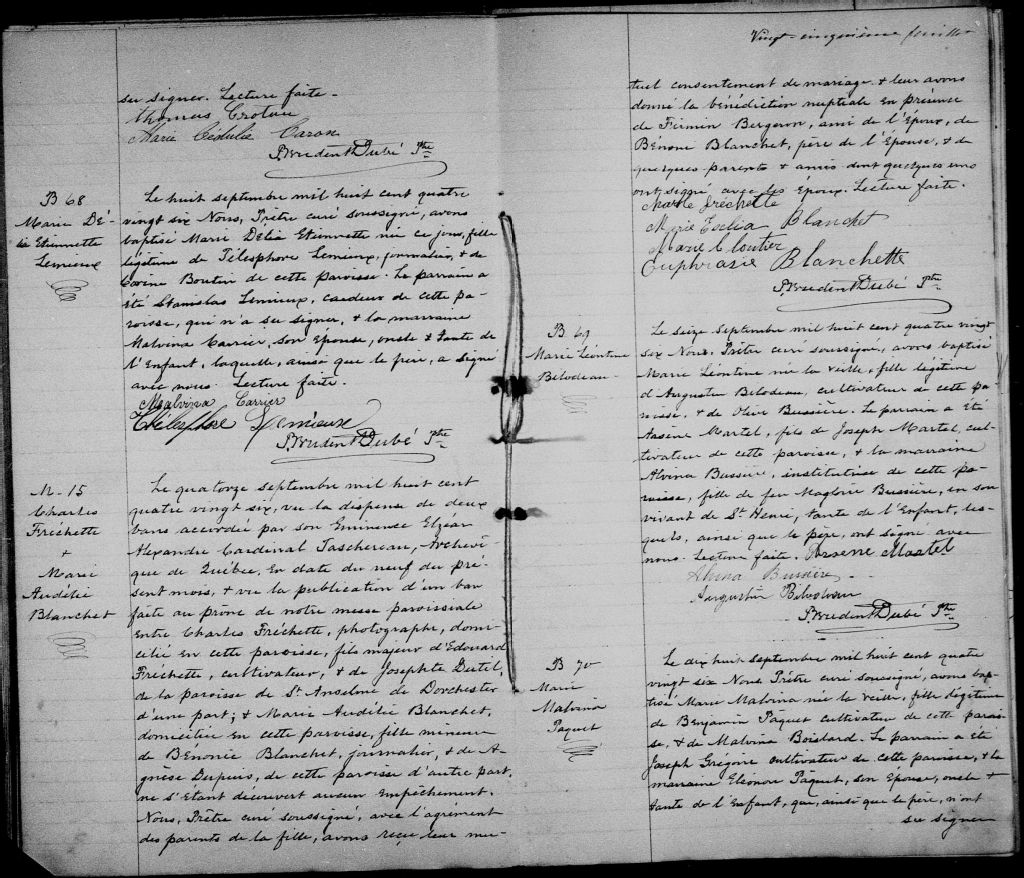 su signer. Lecture faite -
Thomas Croteau
Marie Cédulie Caron
Prudent Dubé Ptre
B 68
Marie Dé-
lia Etiennette
Lemieux
Le huit septembre mil huit cent quatre
vingt six Nous, Prêtre curé soussigné, avons
baptisé Marie Délia Etiennette née ce jour, fille
légitime de Télesphore Lemieux, journalier, & de
Boutin de cette paroisse. Le parrain a
été Stanislas Lemieux, cardeur de cette pa-
roisse, qui n'a su signer, & la marraine
Malvina Carrier, son Épouse, oncle & Tante de
l'Enfant, laquelle, ainsi que le père, a signé
avec nous. Lecture faite.
Malvina Carrier
Thélesphore Lemieux
Prudent Dubé Ptre
M. 15
Charles
Fréchette
+
Marie
Audélie
Blanchet
Le quatorze septembre mil huit cent
quatre vingt six, vu la dispense de deux
bans accordée par son Eminense Elzear
Alexandre Cardinal Taschereau, Archevê-
que de Québec, En date du neuf du pré-
sent mois, & vu la publication d'un ban
faite au prône de notre messe paroissiale
Entre Charles Fréchette, photographe, domi-
cilié en cette paroisse, fils majeur d'Edouard
Fréchette, cultivateur, & de Josephte Dutil,
de la paroisse de St Anselme de Dorchester
d'une part; & Marie Audélie Blanchet,
domiciliée En cette paroisse, fille mineure
de Bénonie Blanchet, journalier, & de A-
gnèse Dupuis, de cette paroisse d'autre part,
ne s'étant découvert aucun Empêchement,
Nous, Prêtre curé soussigné, avec l'agrément
des parents de la fille, avons reçu leur mu-
Vingt-cinquième feuillet
tuel consentement de mariage & leur avons
donné la bénédiction nuptiale En présence
de Firmin Bergeron, ami de l'Époux, de
Bénoni Blanchet, père de l'Épouse, & de
quelques parents & amis dont quelques uns
ont signé avec les Epoux. Lecture faite.
Charle Fréchette
Marie Blanchet
Marie Cloutier
Euphrasie Blanchette
Prudent Dubé Ptre
B 69
Marie Léontine
Bilodeau
Le seize septembre mil huit cent quatre vingt
six Nous, Prêtre curé soussigné, avons baptisé
Marie Léontine née la veille, fille légitime
d'Augustin Bilodeau, cultivateur de cette pa-
roisse, & de Olive Bussière. Le parrain a été
Arsène Martel, fils de Joseph Martel, cul-
tivateur de cette paroisse, & la marraine
Alvina Bussière, institutrice de cette pa-
roisse, fille de feu Magloire Bussière, en son
vivant de St Henri, tante de l'Enfant, les-
quels, ainsi que le père, ont signé avec
nous. Lecture faite. Arsene Martel
Alvina Bussière
Augustin Bilodeau
Prudent Dubé Ptre
B 70
Marie
Malvina
Paquet
Le dix huit septembre mil huit cent quatre
vingt six Nous Prêtre curé soussigné, avons bap-
tisé Marie Malvina née la veille, fille légitime
de Benjamin Pâquet cultivateur de cette parois-
se, & de Malvina Boislard. Le parrain a été
Joseph Grégoire cultivateur de cette paroisse, & la
marraine Eléonore Pâquet, son Epouse, oncle &
tante de l'Enfant, qui, ainsi que le père, n'ont
su signer